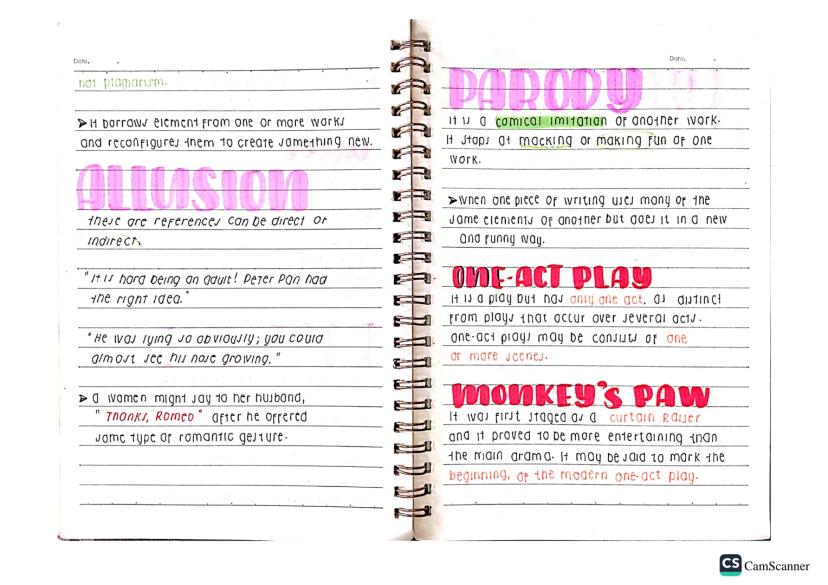 Date.
not plagiarism.
➤It borrows element from one or more works
and reconfigures them to create something new.
ALLUSION
these are references can be direct or
indirect.
"It is hard being an adult! Peter Pan had
the right idea."
"He was lying so obviously; you could
almost see his nose growing."
➤ A women might say to her husband,
"Thanks, Romeo" after he offered
some type of romantic gesture.
Date.
PARODY
It is a comical imitation of another work.
It stops at mocking or making fun of one
work.
➤When one piece of writing uses many of the
same elements of another but does it in a new
and funny way.
ONE-ACT PLAY
It is a play but has only one act, as distinct
from plays that occur over several acts.
one-act plays may be consists of one
or more scenes.
MONKEY'S PAW
It was first staged as a curtain Raiser
and it proved to be more entertaining than
the main drama. It may be said to mark the
beginning, of the modern one-act play.
CS CamScanner